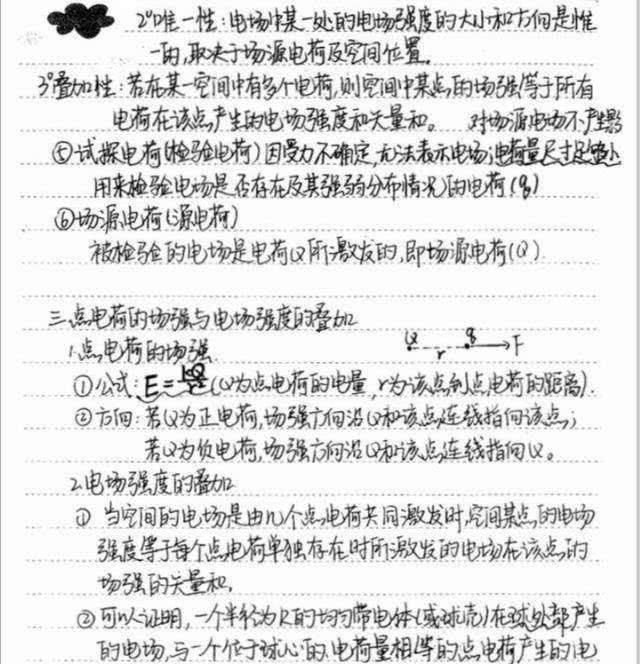 2°唯一性：电场中某一处的电场强度的大小和方向是惟
一的，取决于场源电荷及空间位置。
3°叠加性：若在某一空间中有多个电荷，则空间中某点的场强等于所有
电荷在该点产生的电场强度和矢量和。 对场源电场不产生影
⑤试探电荷(检验电荷)因受力不确定，无法表示电场；电荷量尺寸足够小
用来检验电场是否存在及其强弱分布情况的电荷(q)
⑥场源电荷(源电荷)
被检验的电场是电荷Q所激发的，即场源电荷(Q)
三.点电荷的场强与电场强度的叠加
1.点电荷的场强 Q r q F
①公式：E=kQ/r²(Q为点电荷的电量，r为该点到点电荷的距离).
②方向：若Q为正电荷，场强方向沿Q和该点连线指向该点；
若Q为负电荷，场强方向沿Q和该点连线指向Q。
2.电场强度的叠加
① 当空间的电场是由几个点电荷共同激发时，空间某点的电场
强度等于每个点电荷单独存在时所激发的电场在该点的
场强的矢量和.
②可以证明，一个半径为R的均匀带电体(或球壳)在球外部产生
的电场，与一个位于球心的、电荷量相等的点电荷产生的电